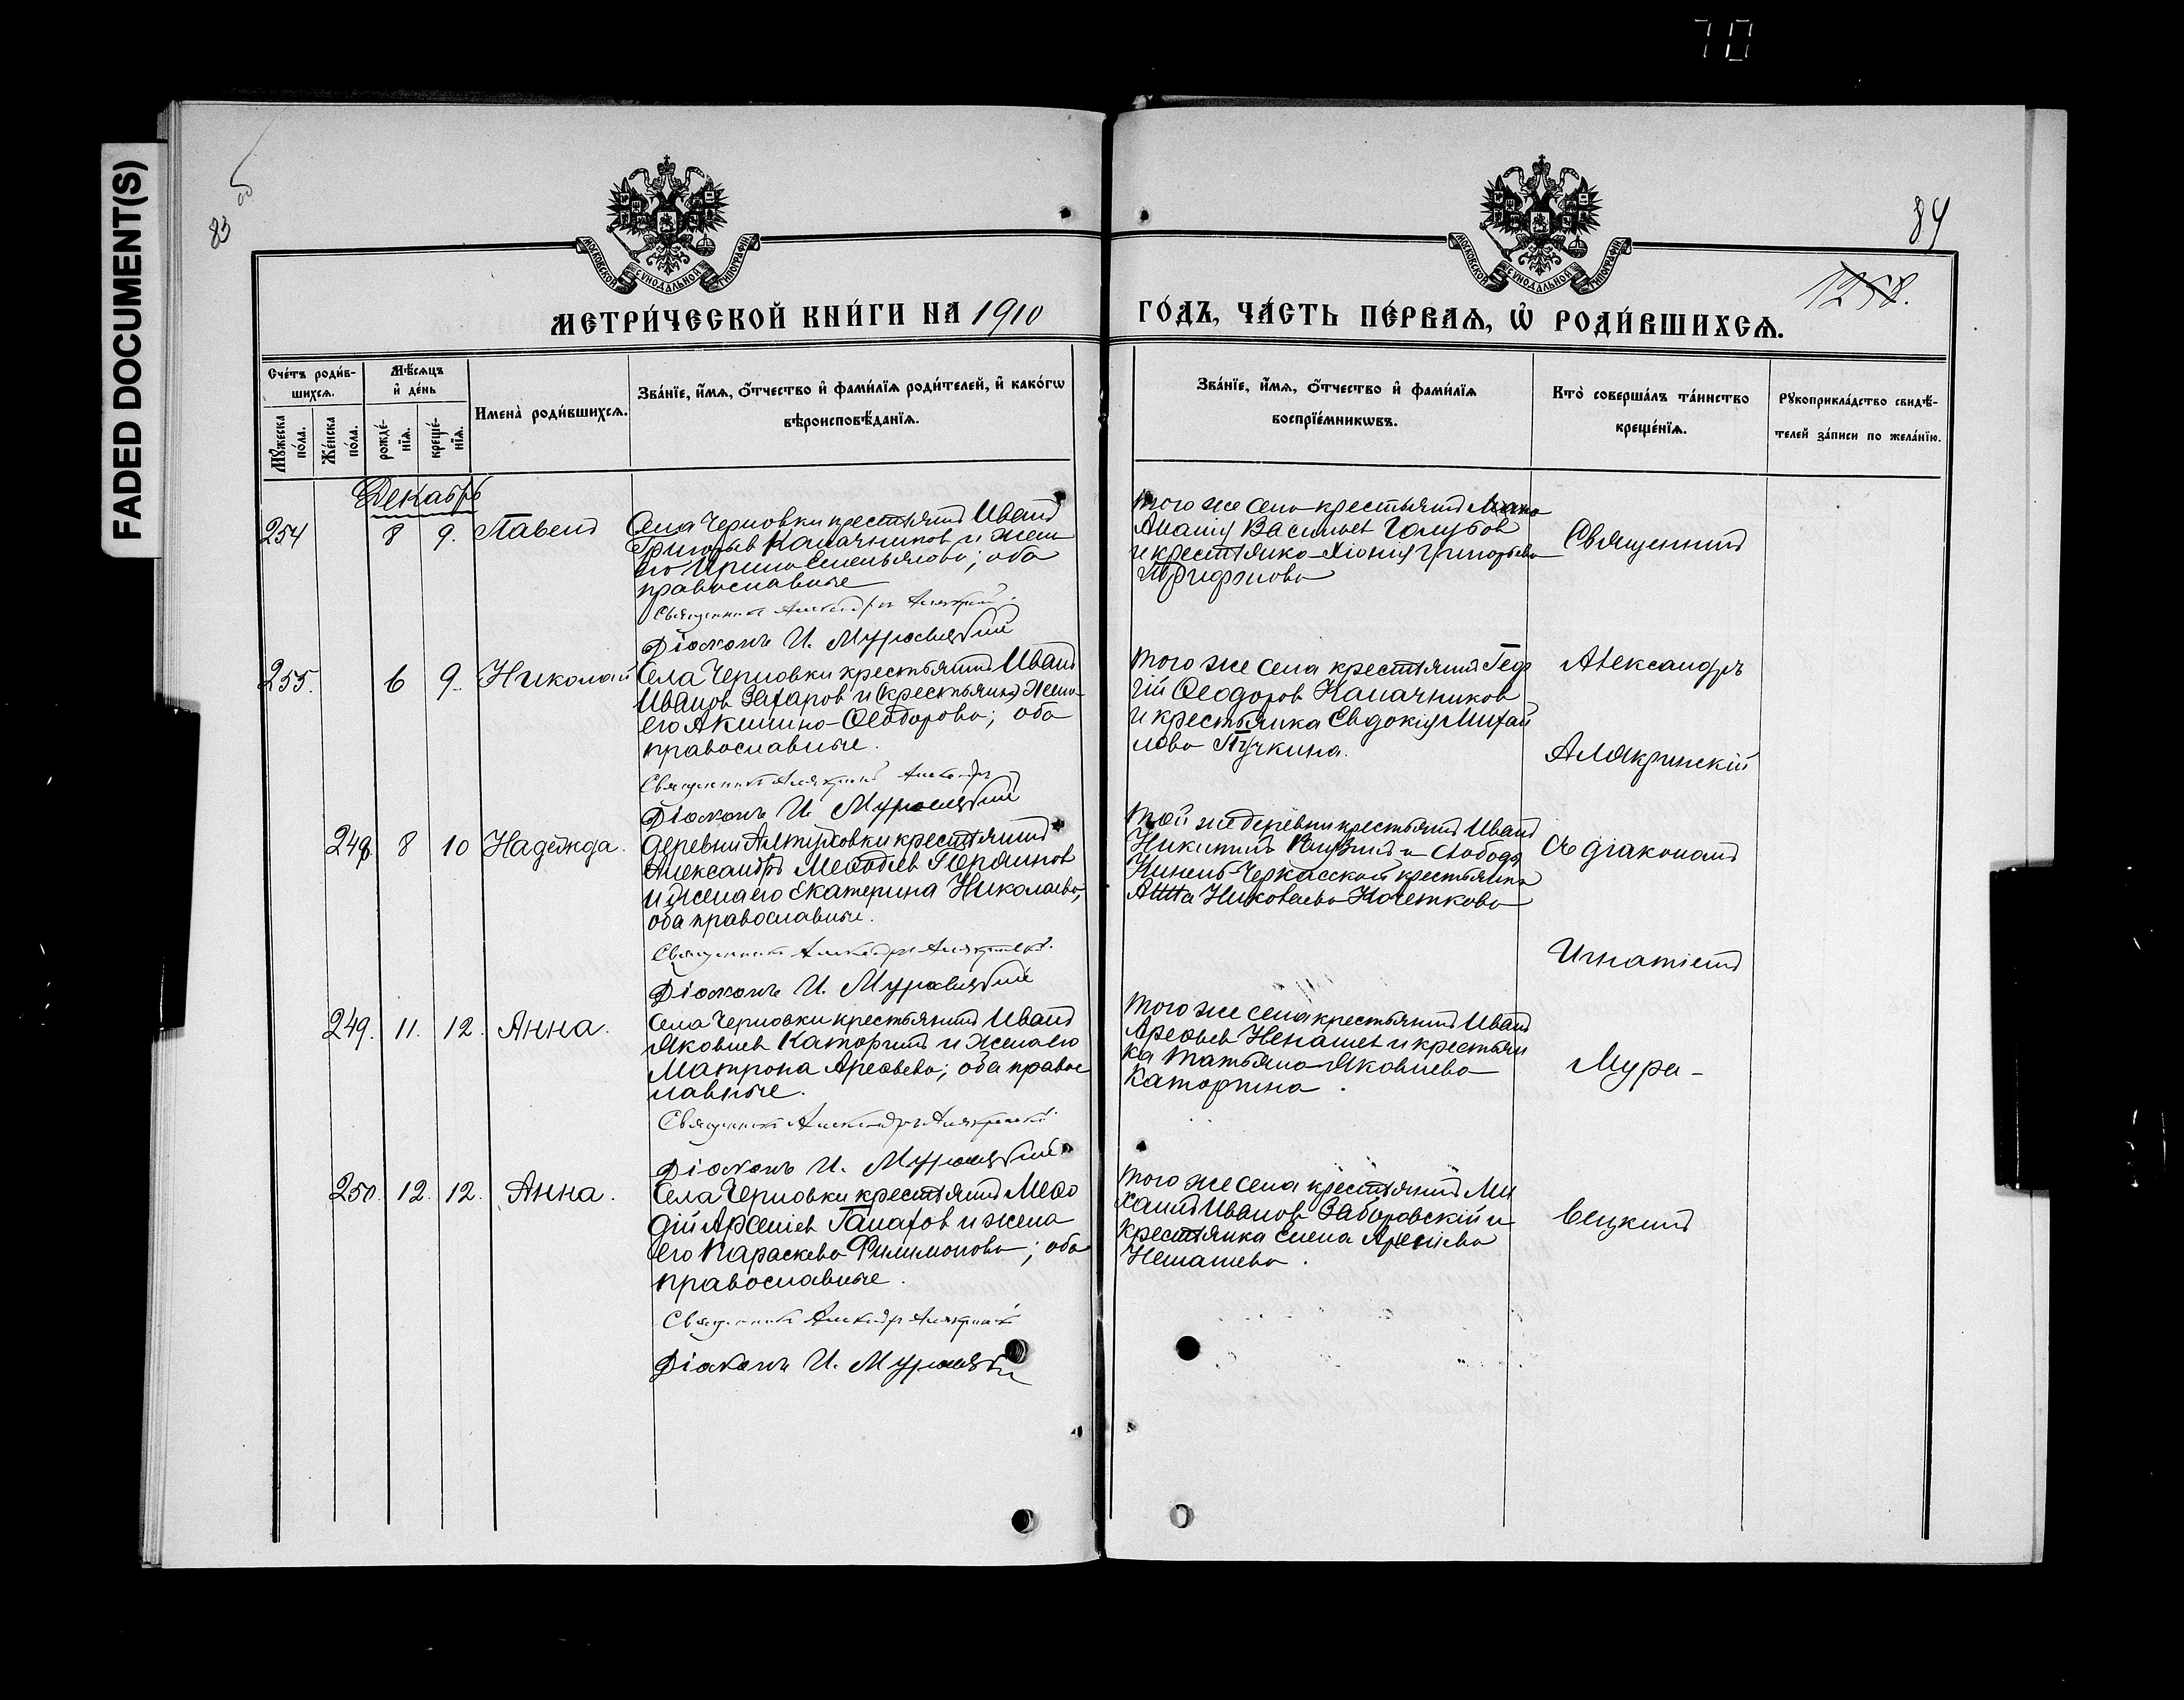 70
FADED DOCUMENT(S)
83 об
84
1258.
МОСКОВСКОЙ СѴНОДАЛЬНОЙ ТИПОГРАФІИ
МОСКОВСКОЙ СѴНОДАЛЬНОЙ ТИПОГРАФІИ
МЕТРИ́ЧЕСКОЙ КНИ́ГИ НА 1910
ГО́ДЪ, ЧА́СТЬ ПЕ́РВАѦ, Ѽ РОДИ́ВШИХСѦ.
Сче́тъ роди́в-
шихсѧ.
Мꙋжеска по́ла.
Же́нска по́ла.
Мѣ́сѧцъ
и҆ де́нь
рожде́-
нїѧ.
креще́-
нїѧ.
Имена̀ роди́вшихсѧ.
Зва́нїе, и҆́мѧ, ѻ҆́тчество и҆ фами́лїѧ роди́телей, и҆ како́гѡ
вѣроисповѣ́данїѧ.
Зва́нїе, и҆́мѧ, ѻ҆́тчество и҆ фами́лїѧ
воспрїе́мникѡвъ.
Кто̀ соверша́лъ та́инство
креще́нїѧ.
Рꙋкоприкла́дство свидѣ́-
телей за́писи по жела́нїю.
Декабрь
254 8 9. Павелъ
Села Черновки крестьянинъ Иванъ
Григорьев Калачников и жена
его Ирина Емельянова; оба
православные
Священникъ Александръ Алякринскій.
Діаконъ И. Муравецкій
того же села крестьянинъ
Ананія Васильев Голубов
и крестьянка Хіонія Григорьева
Трифонова
Священникъ
255. 6 9. Николай
Села Черновки крестьянинъ Иванъ
Иванов Захаров и (крестьянка) жена
его Акилина Ѳеодорова; оба
православные.
Священникъ Алякринскій Александръ
Діаконъ И. Муравецкій
того же села крестьянинъ Геор
гій Ѳеодоров Калачников
и крестьянка Евдокія Михай
лова Пучкина.
Александръ
Алякринскій
248. 8 10 Надежда.
деревни Алтуховки крестьянинъ
Александръ Меѳодіев
и жена его Екатерина Николаева,
оба православные.
Священникъ Александръ Алякринскій.
Діаконъ И. Муравецкій
той же деревни крестьянинъ Иванъ
Никитинъ и Слободы
Кинель-Черкасской крестьянка
Анна Николаева Кочеткова
съ діакономъ
Игнатіемъ
249. 11. 12. Анна.
Села Черновки крестьянинъ Иванъ
Яковлев Каторгинъ и жена его
Матрона Арефьева; оба правос
лавные.
Священникъ Александръ Алякринскій.
Діаконъ И. Муравецкій
того же села крестьянинъ Иванъ
Арефьев Ненашев и крестьян
ка Татьяна Яковлева
Каторгина.
Мура-
250. 12. 12. Анна.
Села Черновки крестьянинъ Меѳо
дій Арсеніев Галахов и жена
его Параскева Филимонова; оба
православные.
Священникъ Александръ Алякринскій
Діаконъ И. Муравецкій
того же села крестьянинъ Ми
хаилъ Иванов Заборовскій и
крестьянка Елена
Ненашева.
вецкимъ